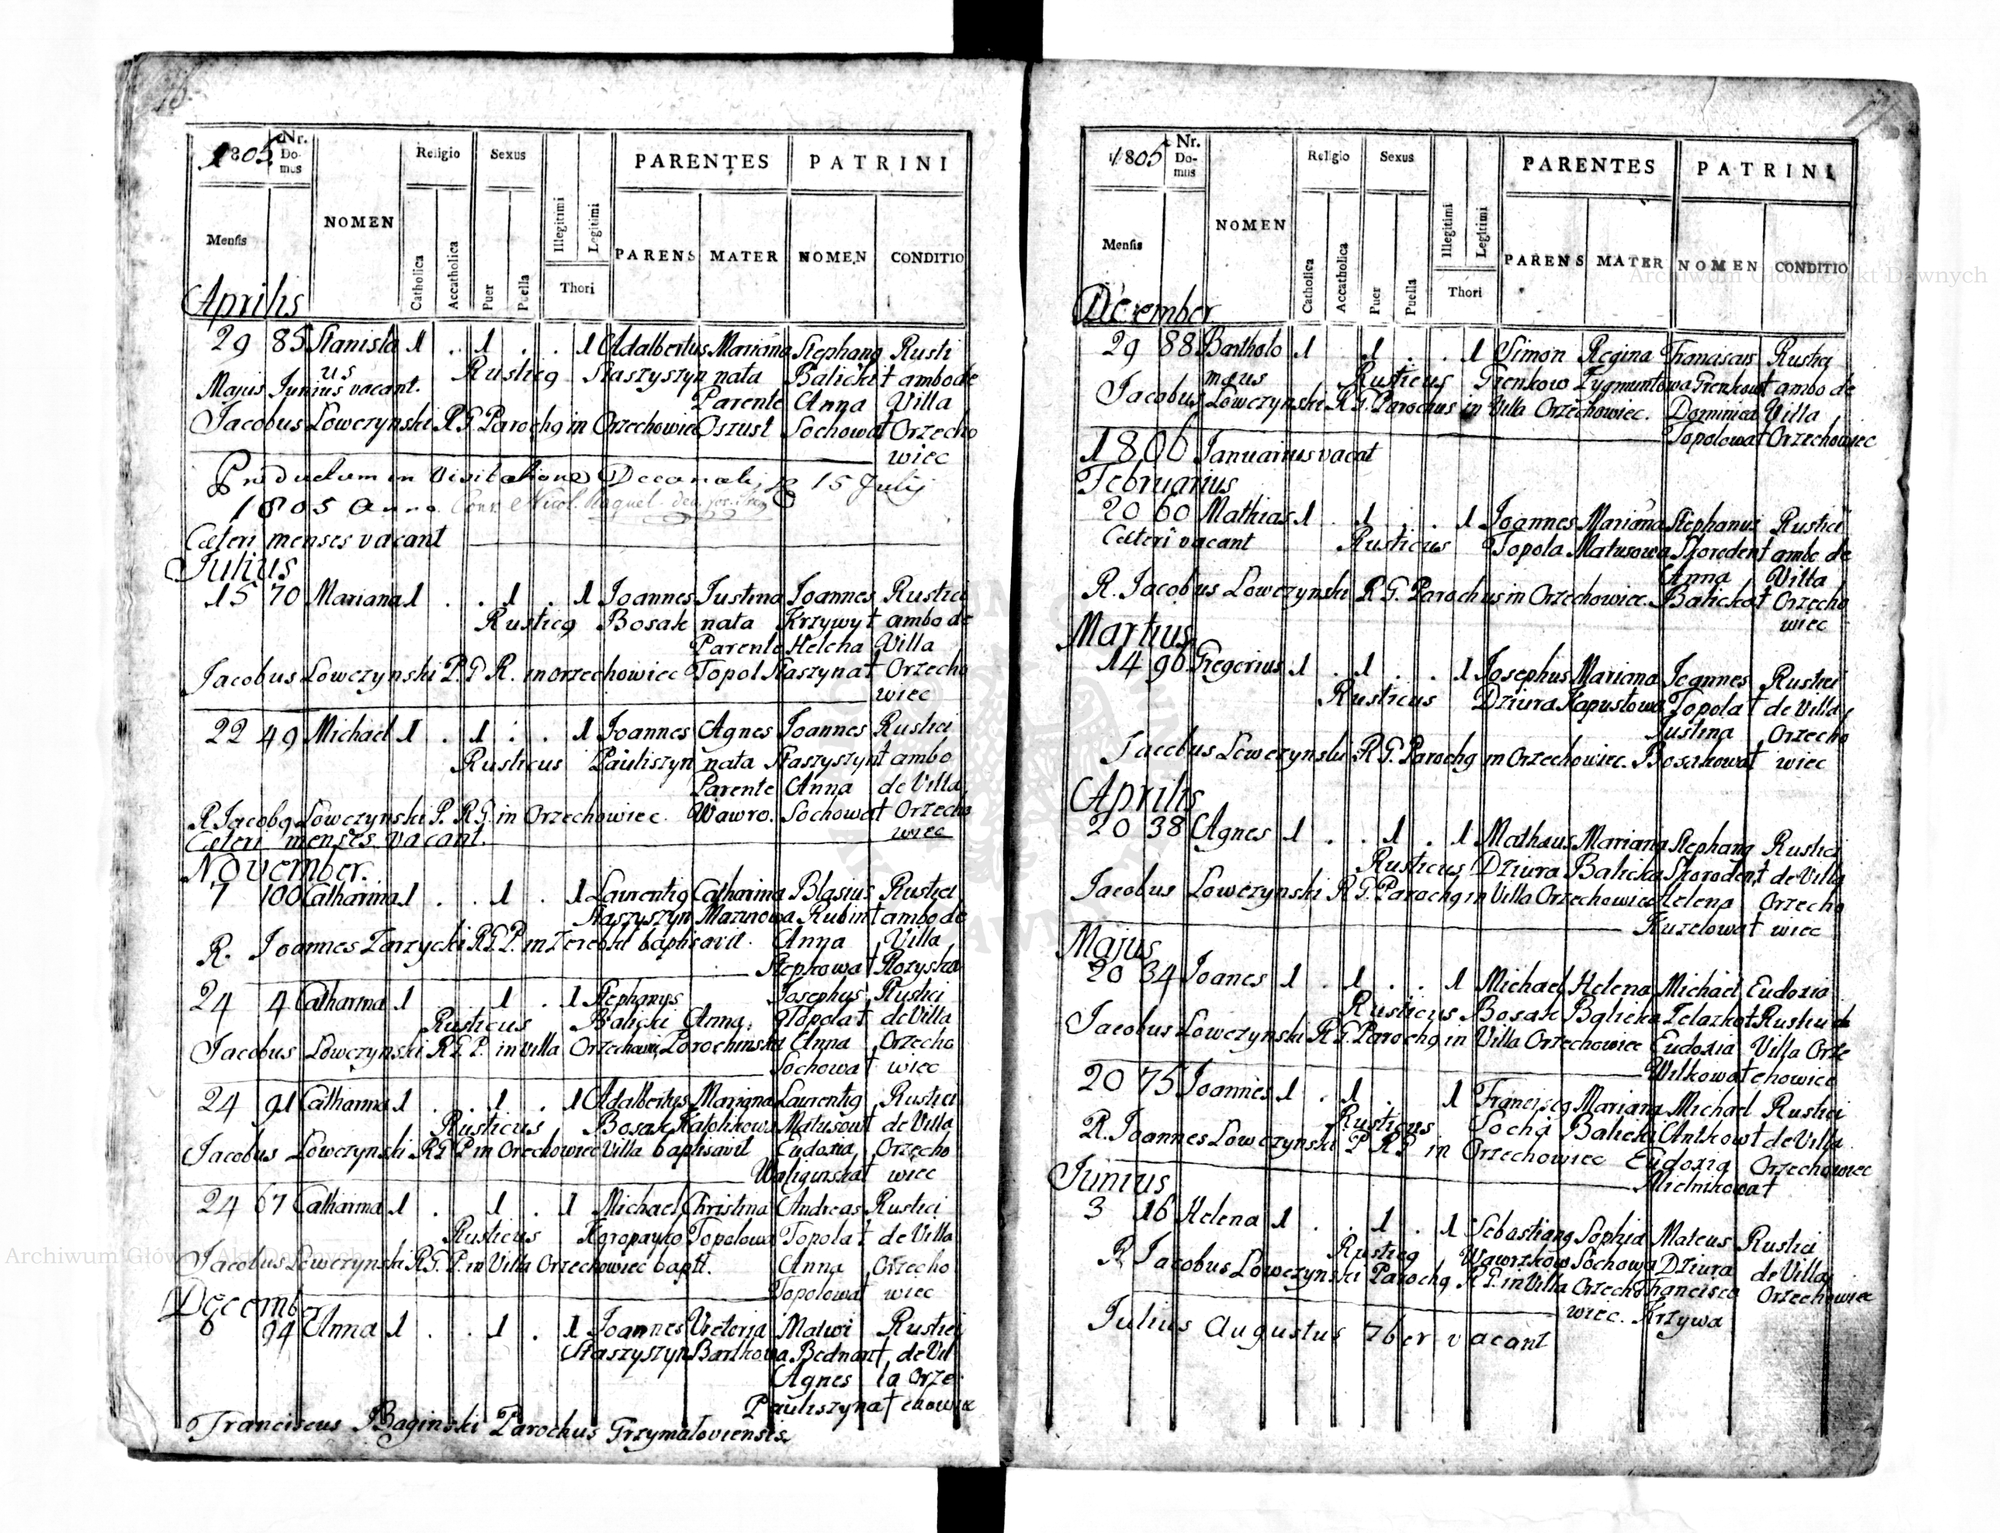 1805 Nr. Domus
NOMEN
Religio
Sexus
Illegitimi
Legitimi
PARENTES
PATRINI
Mensis
Catholica
Accatholica
Puer
Puella
Thori
PARENS
MATER
NOMEN
CONDITIO
Aprilis
29 85 Stanisla 1 . 1 . . 1 Adalbertus Mariana Stephang Rusti
us Rusticg Staszyszyn nata Balicki † ambo de
Majus Junius vacant.
Parente Anna Villa
Jacobus Lowczynski R G Parochg in Orzechowiec Oszust Sochowa † Orzecho
wiec
Productum in Visitatione Decanali, 15 Julij
1805 Anno
Cæteri menses vacant
Julius
15 70 Mariana 1 . . 1 . 1 Joannes Justina Joannes Rustici
Rusticg Bosak nata Krzywy † ambo de
Parente Helena Villa
Jacobus Lowczynski P. G R. in orzechowiec Topol Staszyna † Orzecho
wiec
22 49 Michael 1 . 1 . . 1 Joannes Agnes Joannes Rustici
Rusticus Pauliszyn nata Staszyszyn † ambo
Parente Anna de Villa
R Jacobg Lowczynski P. R G. in Orzechowiec. Wawro. Sochowa † Orzecho
wiec
Cæteri menses vacant.
November.
7 100 Catharina 1 . . 1 . 1 Laurentig Catharina Blasius Rustici
Staszyszyn Mazurowa Rubin † ambo de
R. Joannes Zarzycki R G P. in baptisavit. Anna Villa
Stepkowa † Rozyska
24 4 Catharina 1 . . 1 . 1 Stephanus Josephus Rustici
Rusticus Balicki Anna Topola † de Villa
Jacobus Lowczynski R G P. in villa Orzechowiec Lorochinska Anna Orzecho
Sochowa † wiec
24 91 Catharina 1 . . 1 . 1 Adalbertus Mariana Laurentig Rustici
Rusticus Bosak Matusow † de Villa
Jacobus Lowczynski R G P in Orechowiec Villa baptisavit Eudoxia Orzecho
Waliginska † wiec
24 67 Catharina 1 . . 1 . 1 Michael Christina Andreas Rustici
Rusticus Topolowa Topola † de Villa
Jacobus Lowczynski R G. P. in Villa Orzechowiec bapti. Anna Orzecho
Topolowa † wiec
Decemb
6 94 Anna 1 . . 1 . 1 Joannes Victoria Matwi Rustici
Staszyszyn Bartkowa Bednar † de Vil
Agnes la Orze
Pauliszyna † chowiec
Franciscus Baginski Parochus Grzymaloviensis
1805 Nr. Domus
NOMEN
Religio
Sexus
Illegitimi
Legitimi
PARENTES
PATRINI
Mensis
Catholica
Accatholica
Puer
Puella
Thori
PARENS
MATER
NOMEN
CONDITIO
December
29 88 Bartholo 1 1 . . 1 Simon Regina Rustici
mæus Rusticus Grenkow Zygmuntowa Grenkow † ambo de
Jacobus Lowczynski R G. Parochus in Villa Orzechowiec. Dominica Villa
Topolowa † Orzechowiec
1806 Januarius vacat
Februarius
20 60 Mathias 1 . 1 . . 1 Joannes Mariana Stephanus Rustici
Cæteri vacant Rusticus Topola Matusowa Skoroden † ambo de
Anna Villa
R. Jacobus Lowczynski R G. Parochus in Orzechowiec. Balicka † Orzecho
wiec
Martius
14 96 Gregorius 1 . 1 . . 1 Josephus Mariana Joannes Rustici
Rusticus Dziura Kapustowa Topola † de Villa
Justina Orzecho
Jacobus Lowczynski R G. Parochg in Orzechowiec. Bosakowa † wiec
Aprilis
20 38 Agnes 1 . . 1 . 1 Mathæus Mariana Stephang Rustici
Rusticus Dziura Balicka Skoroden † de Villa
Jacobus Lowczynski R G. Parochg in Villa Orzechowiec Helena Orzecho
Kuzelowa † wiec
Majus
20 34 Joanes 1 . 1 . . 1 Michael Helena Michael Eudoxia
Rusticus Bosak Balicka Zelazko † Rustici de
Jacobus Lowczynski R G. Parochg in Villa Orzechowiec Eudoxia Villa Orze
Wilkowa † chowiec
20 75 Joannes 1 . 1 . 1 Franciscg Mariana Michael Rustici
Rusticus Socha Balicki Antkow † de Villa
R. Joannes Lowczynski P R G in Orzechowiec Eudoxia Orzechowiec
Mielnikowa †
Junius
3 16 Helena 1 . . 1 . 1 Sebastiang Sophia Mateus Rustici
Rusticg Wawrzkow Sochowa Dziura de Villa
R Jacobus Lowczynski Parochg R G. in Villa Orzecho Francisca Orzechowiec
wiec. Krzywa
Julius Augustus 7ber vacant
Archiwum Główne Akt Dawnych
Archiwum Główne Akt Dawnych